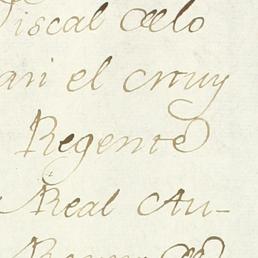 iscal delo
ari el muy
Regente
Real Au-